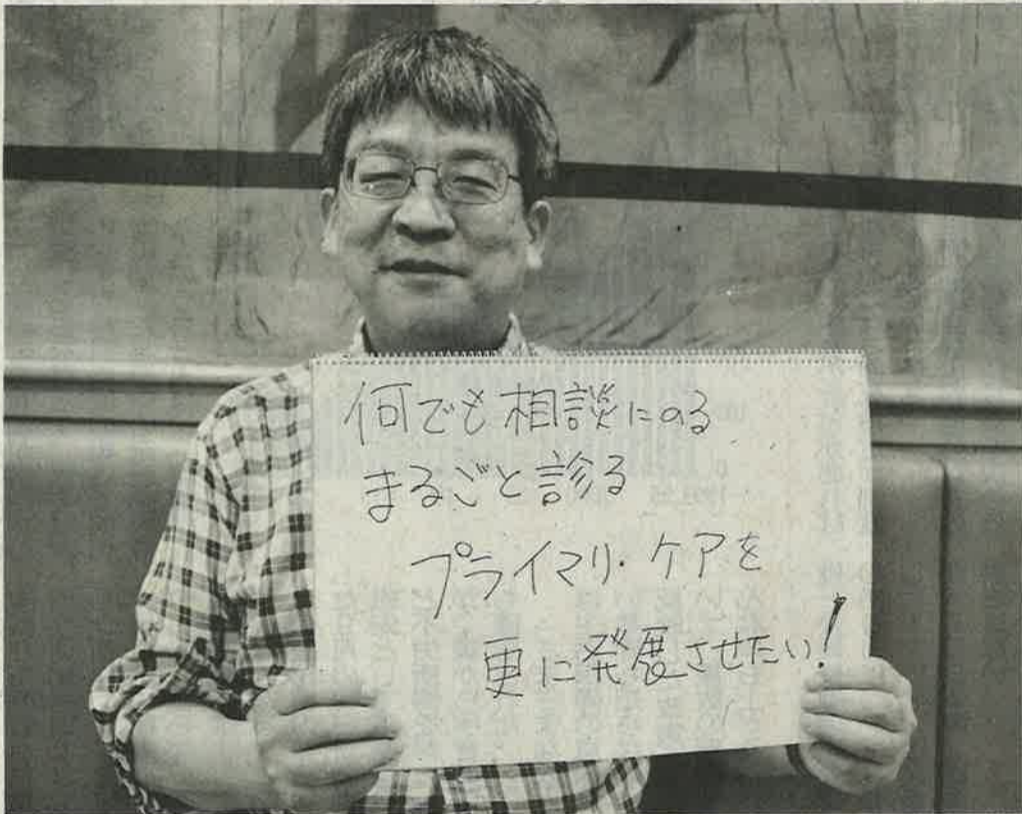 何でも相談にのる
まるごと診る
プライマリ・ケアを
更に発展させたい!